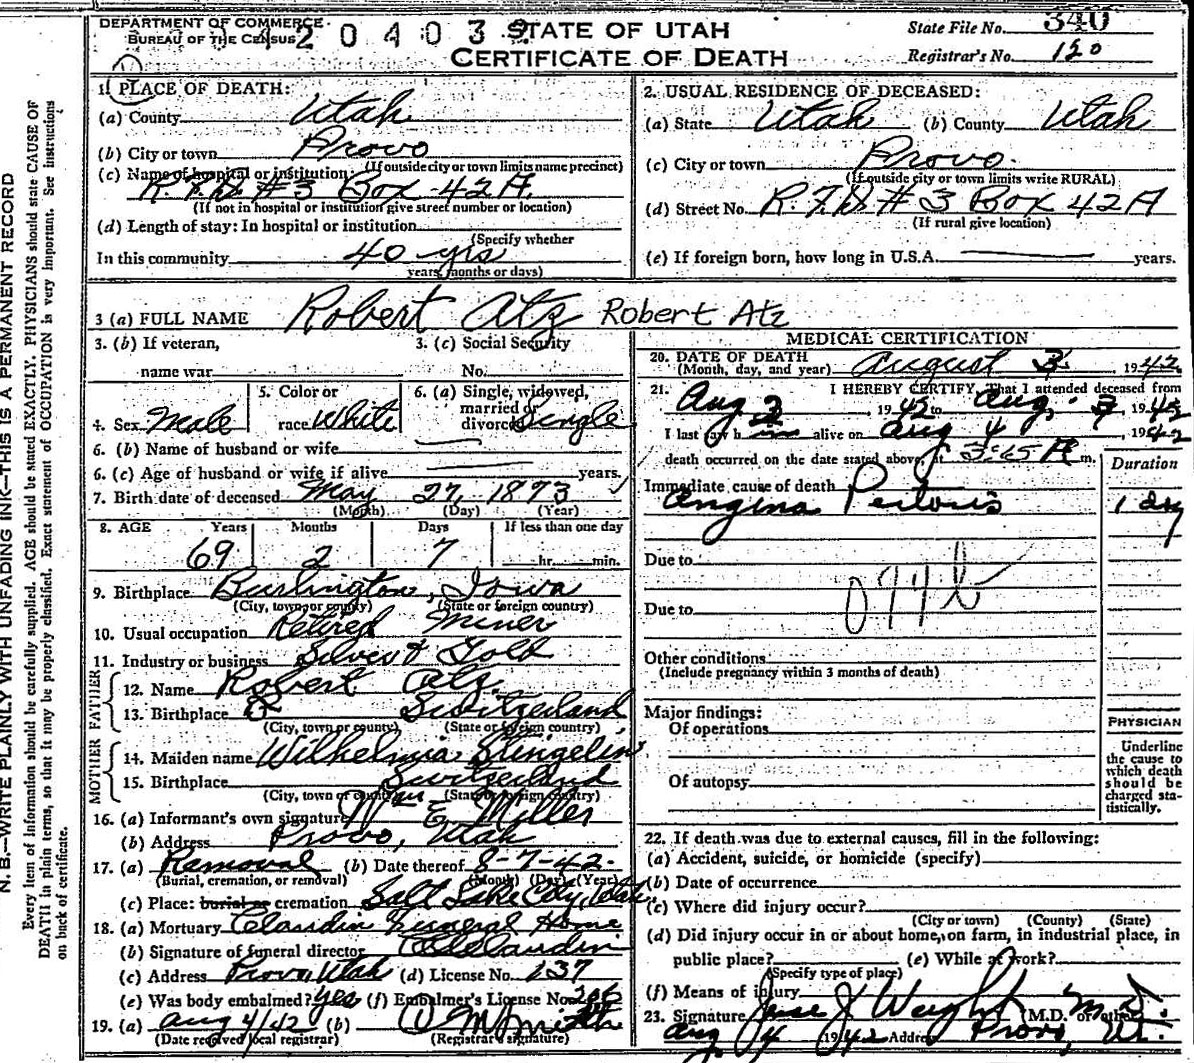 DEPARTMENT OF COMMERCE
BUREAU OF THE CENSUS
4204039
STATE OF UTAH
CERTIFICATE OF DEATH
State File No. 340
Registrar's No. 120
N. B.—WRITE PLAINLY WITH UNFADING INK—THIS IS A PERMANENT RECORD
Every item of information should be carefully supplied. AGE should be stated EXACTLY. PHYSICIANS should state CAUSE OF
DEATH in plain terms, so that it may be properly classified. Exact statement of OCCUPATION is very important. See instructions
on back of certificate.
1. PLACE OF DEATH:
(a) County Utah
(b) City or town Provo
(If outside city or town limits name precinct)
(c) Name of hospital or institution:
R.F.D. #3 Box 42A.
(If not in hospital or institution give street number or location)
(d) Length of stay: In hospital or institution
(Specify whether
In this community 40 yrs
years, months or days)
2. USUAL RESIDENCE OF DECEASED:
(a) State Utah (b) County Utah
(c) City or town Provo.
(If outside city or town limits write RURAL)
(d) Street No. R.F.D. #3 Box 42A
(If rural give location)
(e) If foreign born, how long in U.S.A. years.
3 (a) FULL NAME Robert Atz Robert Atz
3. (b) If veteran,
name war
3. (c) Social Security
No.
4. Sex Male
5. Color or
race White
6. (a) Single, widowed,
married or
divorced Single
6. (b) Name of husband or wife
6. (c) Age of husband or wife if alive years.
7. Birth date of deceased May 27, 1873
(Month) (Day) (Year)
8. AGE Years Months Days If less than one day
69 2 7 hr. min.
9. Birthplace Burlington, Iowa
(City, town or county) (State or foreign country)
10. Usual occupation Retired Miner
11. Industry or business Silver & Gold
FATHER
12. Name Robert Atz.
13. Birthplace Switzerland
(City, town or county) (State or foreign country)
MOTHER
14. Maiden name Wilhelmia Stingelin
15. Birthplace Switzerland
(City, town or county) (State or foreign country)
16. (a) Informant's own signature Wm E Miller
(b) Address Provo, Utah
17. (a) Removal (b) Date thereof 8-7-42.
(Burial, cremation, or removal) (Month) (Day) (Year)
(c) Place: burial or cremation Salt Lake City, Utah.
18. (a) Mortuary Claudin Funeral Home
(b) Signature of funeral director Claudin
(c) Address Provo, Utah (d) License No. 137
(e) Was body embalmed? yes (f) Embalmer's License No. 206
19. (a) Aug 4/42 (b) O M Smith
(Date received local registrar) (Registrar's signature)
MEDICAL CERTIFICATION
20. DATE OF DEATH
(Month, day, and year) August 3, 1942
21. I HEREBY CERTIFY, That I attended deceased from
Aug 3, 1942 to Aug. 3, 1942
I last saw him alive on Aug 4, 1942
death occurred on the date stated above, at 3:45 A m.
Duration
Immediate cause of death
Angina Pectoris 1 day
Due to
094b
Due to
Other conditions
(Include pregnancy within 3 months of death)
Major findings:
Of operations
Of autopsy
PHYSICIAN
Underline
the cause to
which death
should be
charged sta-
tistically.
22. If death was due to external causes, fill in the following:
(a) Accident, suicide, or homicide (specify)
(b) Date of occurrence
(c) Where did injury occur?
(City or town) (County) (State)
(d) Did injury occur in or about home, on farm, in industrial place, in
public place? (e) While at work?
(Specify type of place)
(f) Means of injury
23. Signature J Weight M.D. (M.D. or other)
Aug 4 1942 Address Provo, Ut.